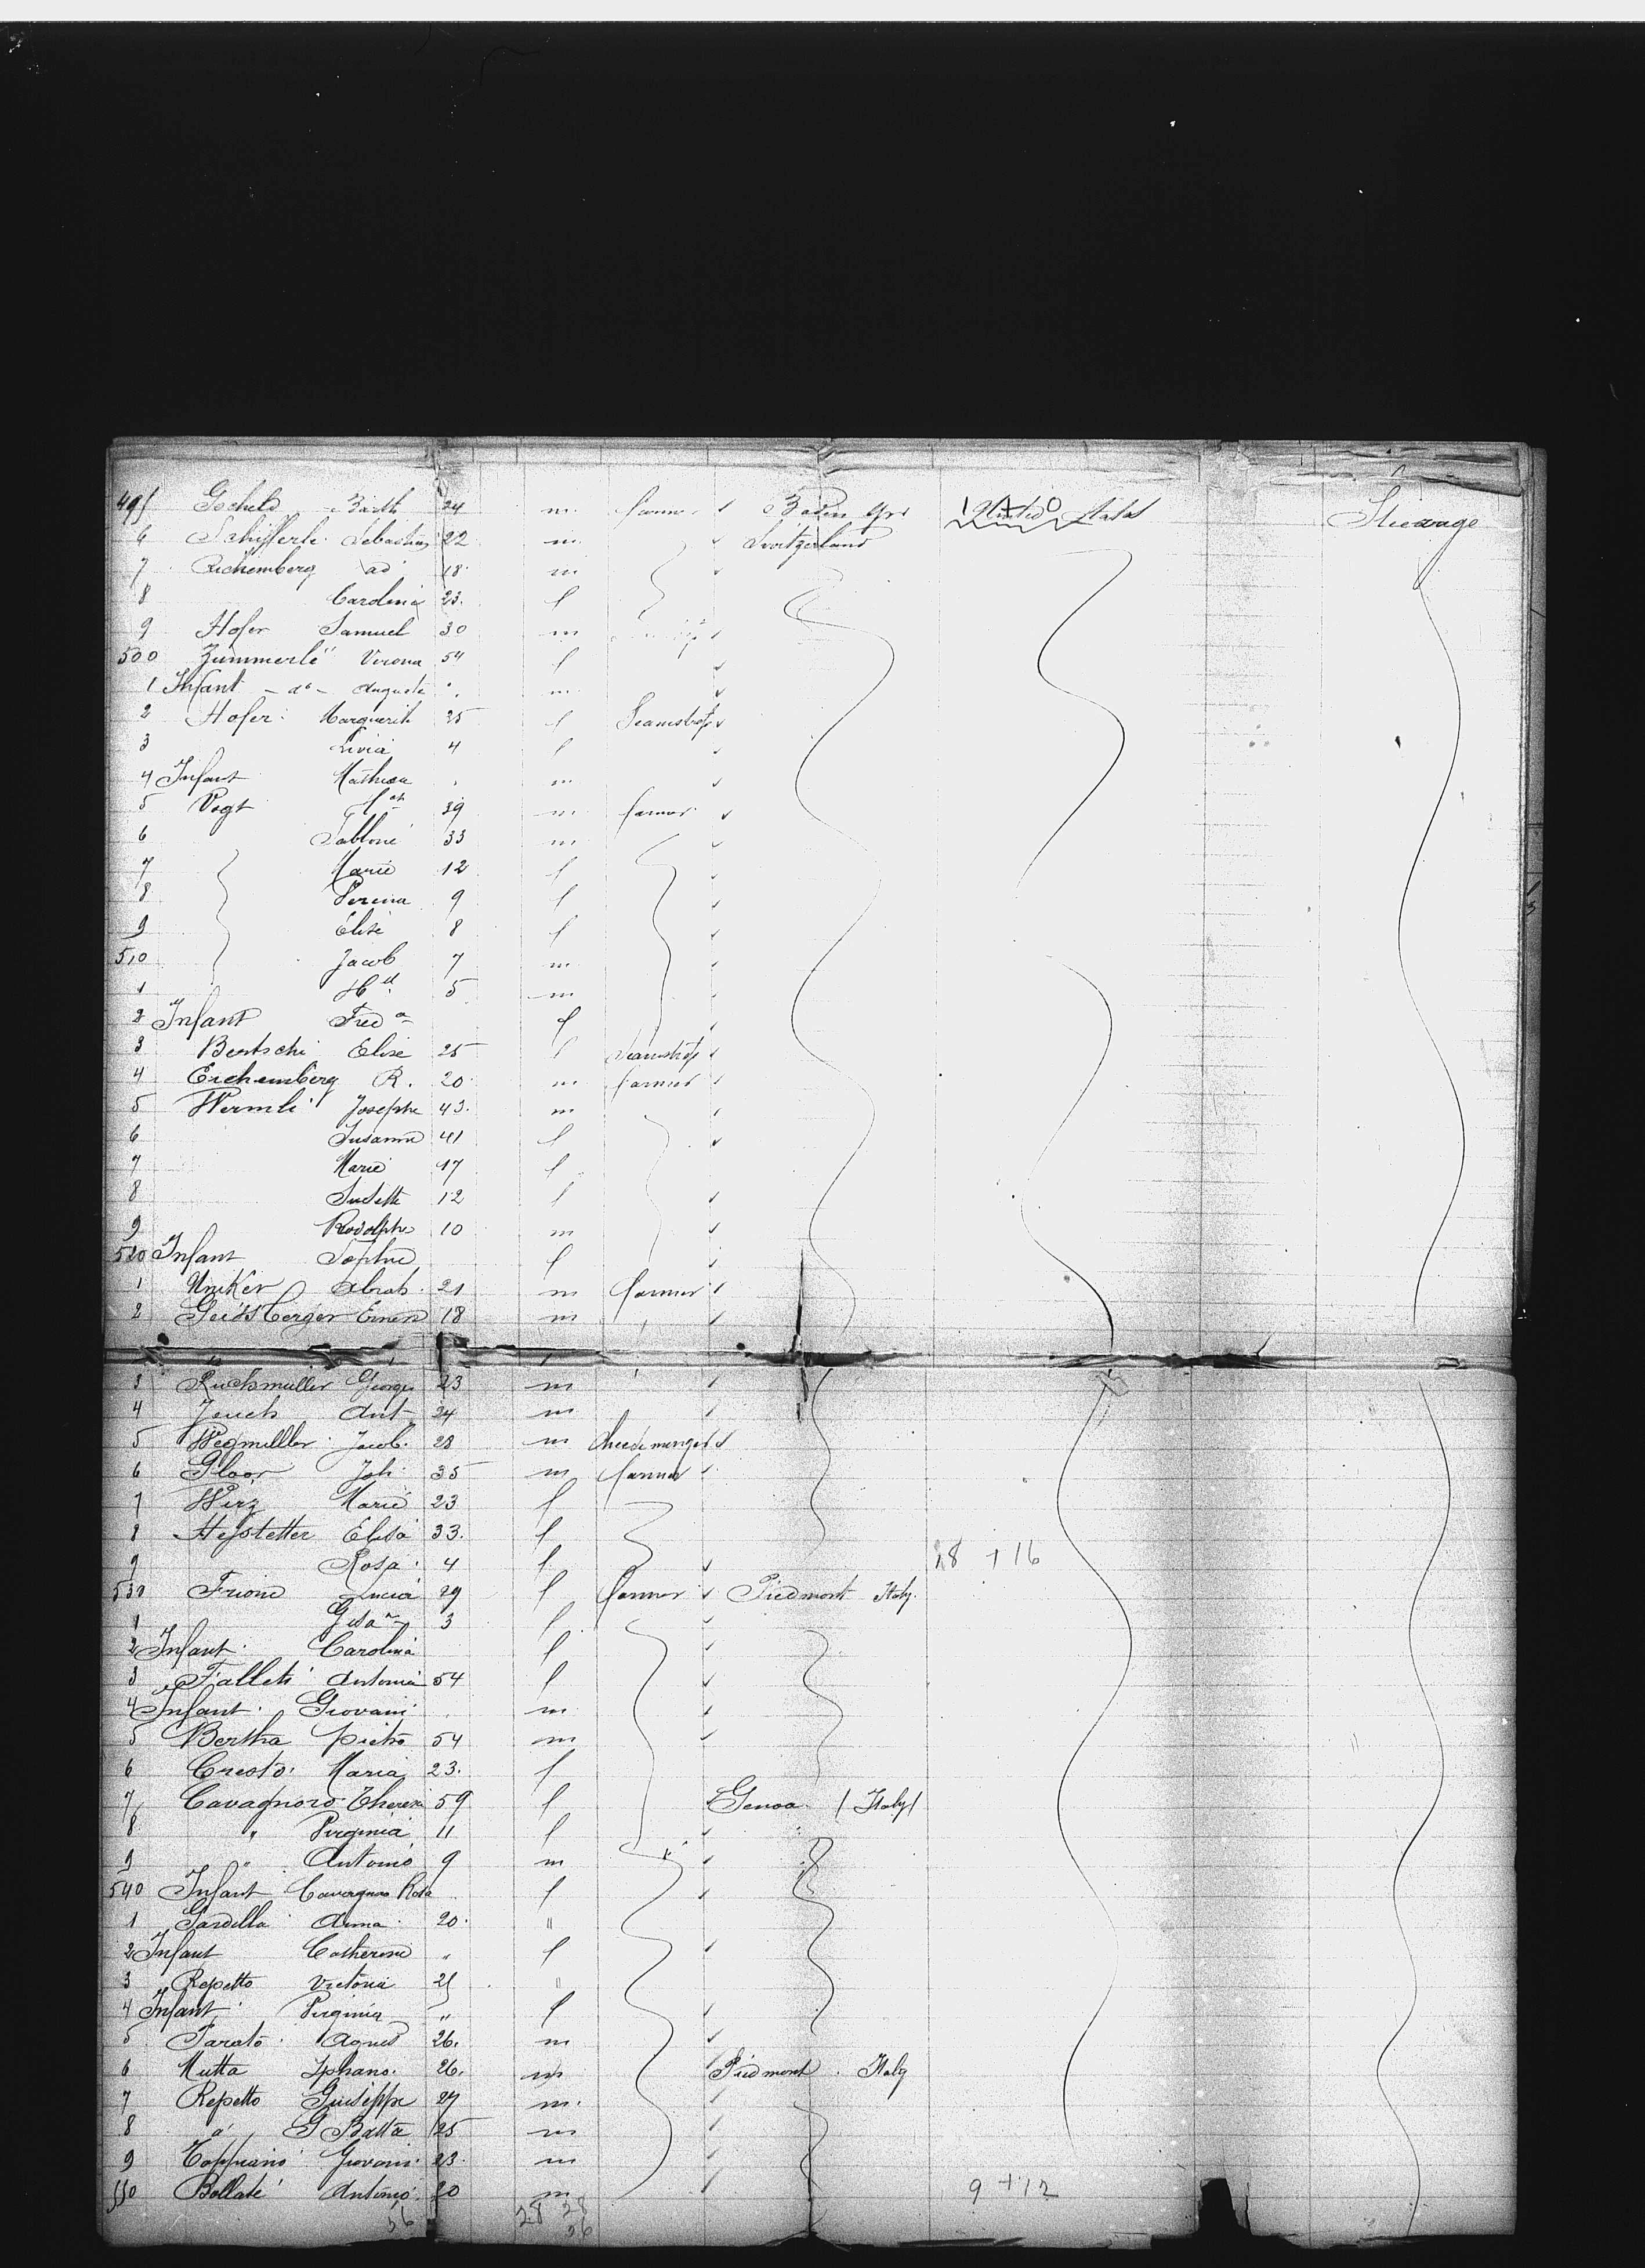 495 Gocheld Barth 24 m farmer Baden Gr United States Steerage
6 Schifferli Sebastian 22 m Switzerland
7 Richemberg ad 18 m
8 Carolina 23 f
9 Hofer Samuel 30 m
500 Zummerlé Verona 54 f
1 Infant - do - Auguste m
2 Hofer Marguerite 25 f Seamstress
3 Livia 4 f
4 Infant Mathieu m
5 Vogt 39 m farmer
6 33 m
7 Marie 12 f
8 Verena 9 f
9 Elise 8 f
510 Jacob 7 m
1 5 m
2 Infant Fred a f
3 Bertschi Elise 25 f Seamstress
4 Eichemberg R. 20 m farmer
5 Wermli Josephe 43 m
6 Susanne 41 f
7 Marie 17 f
8 Susette 12 f
9 Rodolphe 10 m
520 Infant Sophie f
1 Umiker Abrah. 21 m farmer
2 Geissberger 18 m
3 Ruchmuller Georges 23 m
4 Jeuch Ant 24 m
5 Wegmuller Jacob 28 m cheesemonger
6 Gloor Joh 35 m farmer
7 Wirz Marie 23 f
8 Hefstetter Elisa 33. f
9 Rosa 4 f 18 + 16
530 Frione Lucia 29 f farmer Piedmont Italy
1 3 f
2 Infant Carolina f
3 Falleti Antonia 54 f
4 Infant Giovani m
5 Bertha Pietro 54 m
6 Cresto Maria 23. f
7 Cavagnoro Theresa 59 f Genoa (Italy)
8 " Virginia 11 f
9 " Antonio 9 m
540 Infant Cavagnoro Rosa f
1 Gardella Anna 20 "
2 Infant Catherine " f
3 Repetto Victoria 25 "
4 Infant Virginia " f
5 Agnes 26. m
6 Mutta 26. m Piedmont. Italy
7 Repetto Giuseppe 27 m.
8 d G Batta 25 m
9 Giovani 23 m
550 Antonio 20 m 9 + 12
56 28 28
56